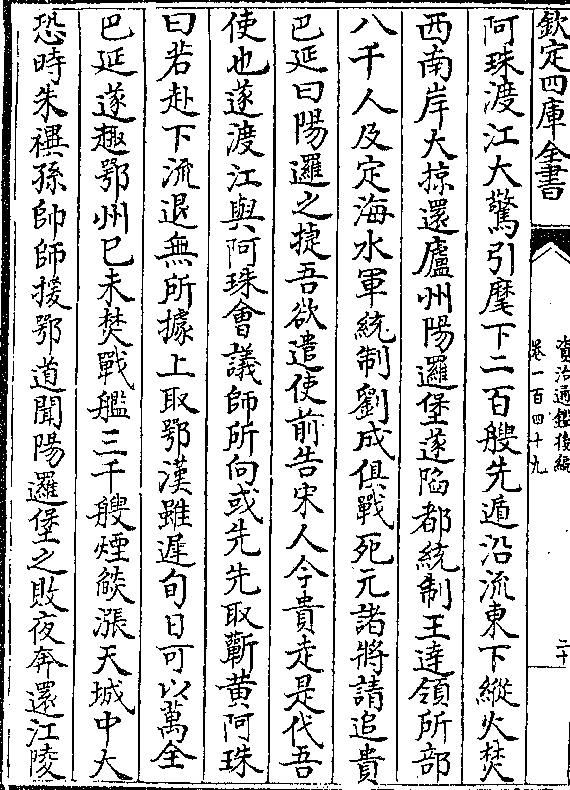 欽定四庫全書
資治通鑑後編
卷一百四十九
二十
阿珠渡江大驚引麾下二百艘先遁沿流東下縱火焚
西南岸大掠還廬州陽邏堡遂陷都統制王逹領所部
八千人及定海水軍統制劉成俱戰死元諸將請追貴
巴延曰陽邏之捷吾欲遣使前告宋人今貴走是代吾
使也遂渡江與阿珠會議師所向或先先取蘄黄阿珠
曰若赴下流退無所據上取鄂漢雖遲旬日可以萬全
巴延遂趣鄂州巳未焚戰艦三千艘煙燄漲天城中大
恐時朱禩孫帥師援鄂道聞陽邏堡之敗夜奔還江陵